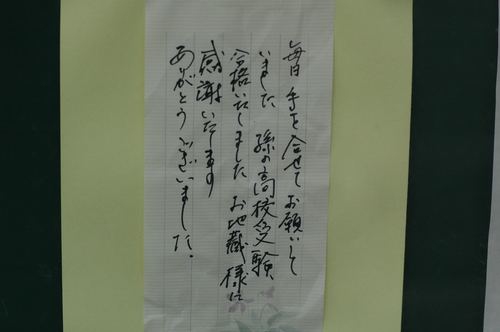 毎日手を合せてお願いして
いました 孫の高校受験
合格いたしました お地蔵様に
感謝いたします
ありがとうございました。